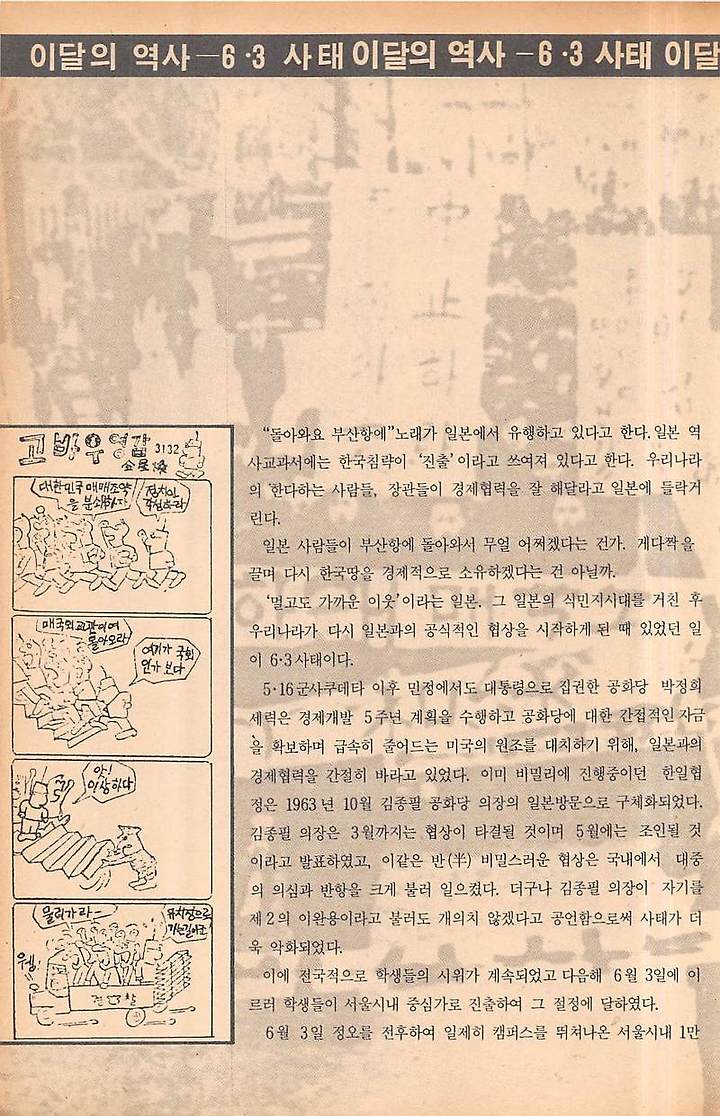 이달의 역사—6·3 사태 이달의 역사—6·3 사태 이달
고바우영감
3132
대한민국 매매조약
을 분쇄하자
정치인
각성하라
매국외교관이여
돌아오라
여기가 국회
인가 보다
앗!
이상하다
물러가라—
유치장으로
가는길이군!
우웽!
경찰
“돌아와요 부산항에”노래가 일본에서 유행하고 있다고 한다. 일본 역
사교과서에는 한국침략이 ‘진출’이라고 쓰여져 있다고 한다. 우리나라
의 ‘한다하는 사람들, 장관들이 경제협력을 잘 해달라고 일본에 들락거
린다.
일본 사람들이 부산항에 돌아와서 무얼 어쩌겠다는 건가. 게다짝을
끌며 다시 한국땅을 경제적으로 소유하겠다는 건 아닐까.
‘멀고도 가까운 이웃’이라는 일본. 그 일본의 식민지시대를 거친 후
우리나라가 다시 일본과의 공식적인 협상을 시작하게 된 때 있었던 일
이 6·3사태이다.
5·16군사쿠데타 이후 민정에서도 대통령으로 집권한 공화당 박정희
세력은 경제개발 5주년 계획을 수행하고 공화당에 대한 간접적인 자금
을 확보하며 급속히 줄어드는 미국의 원조를 대치하기 위해, 일본과의
경제협력을 간절히 바라고 있었다. 이미 비밀리에 진행중이던 한일협
정은 1963년 10월 김종필 공화당 의장의 일본방문으로 구체화되었다.
김종필 의장은 3월까지는 협상이 타결될 것이며 5월에는 조인될 것
이라고 발표하였고, 이같은 반(半) 비밀스러운 협상은 국내에서 대중
의 의심과 반항을 크게 불러 일으켰다. 더구나 김종필 의장이 자기를
제2의 이완용이라고 불러도 개의치 않겠다고 공언함으로써 사태가 더
욱 악화되었다.
이에 전국적으로 학생들의 시위가 계속되었고 다음해 6월 3일에 이
르러 학생들이 서울시내 중심가로 진출하여 그 절정에 달하였다.
6월 3일 정오를 전후하여 일제히 캠퍼스를 뛰쳐나온 서울시내 1만